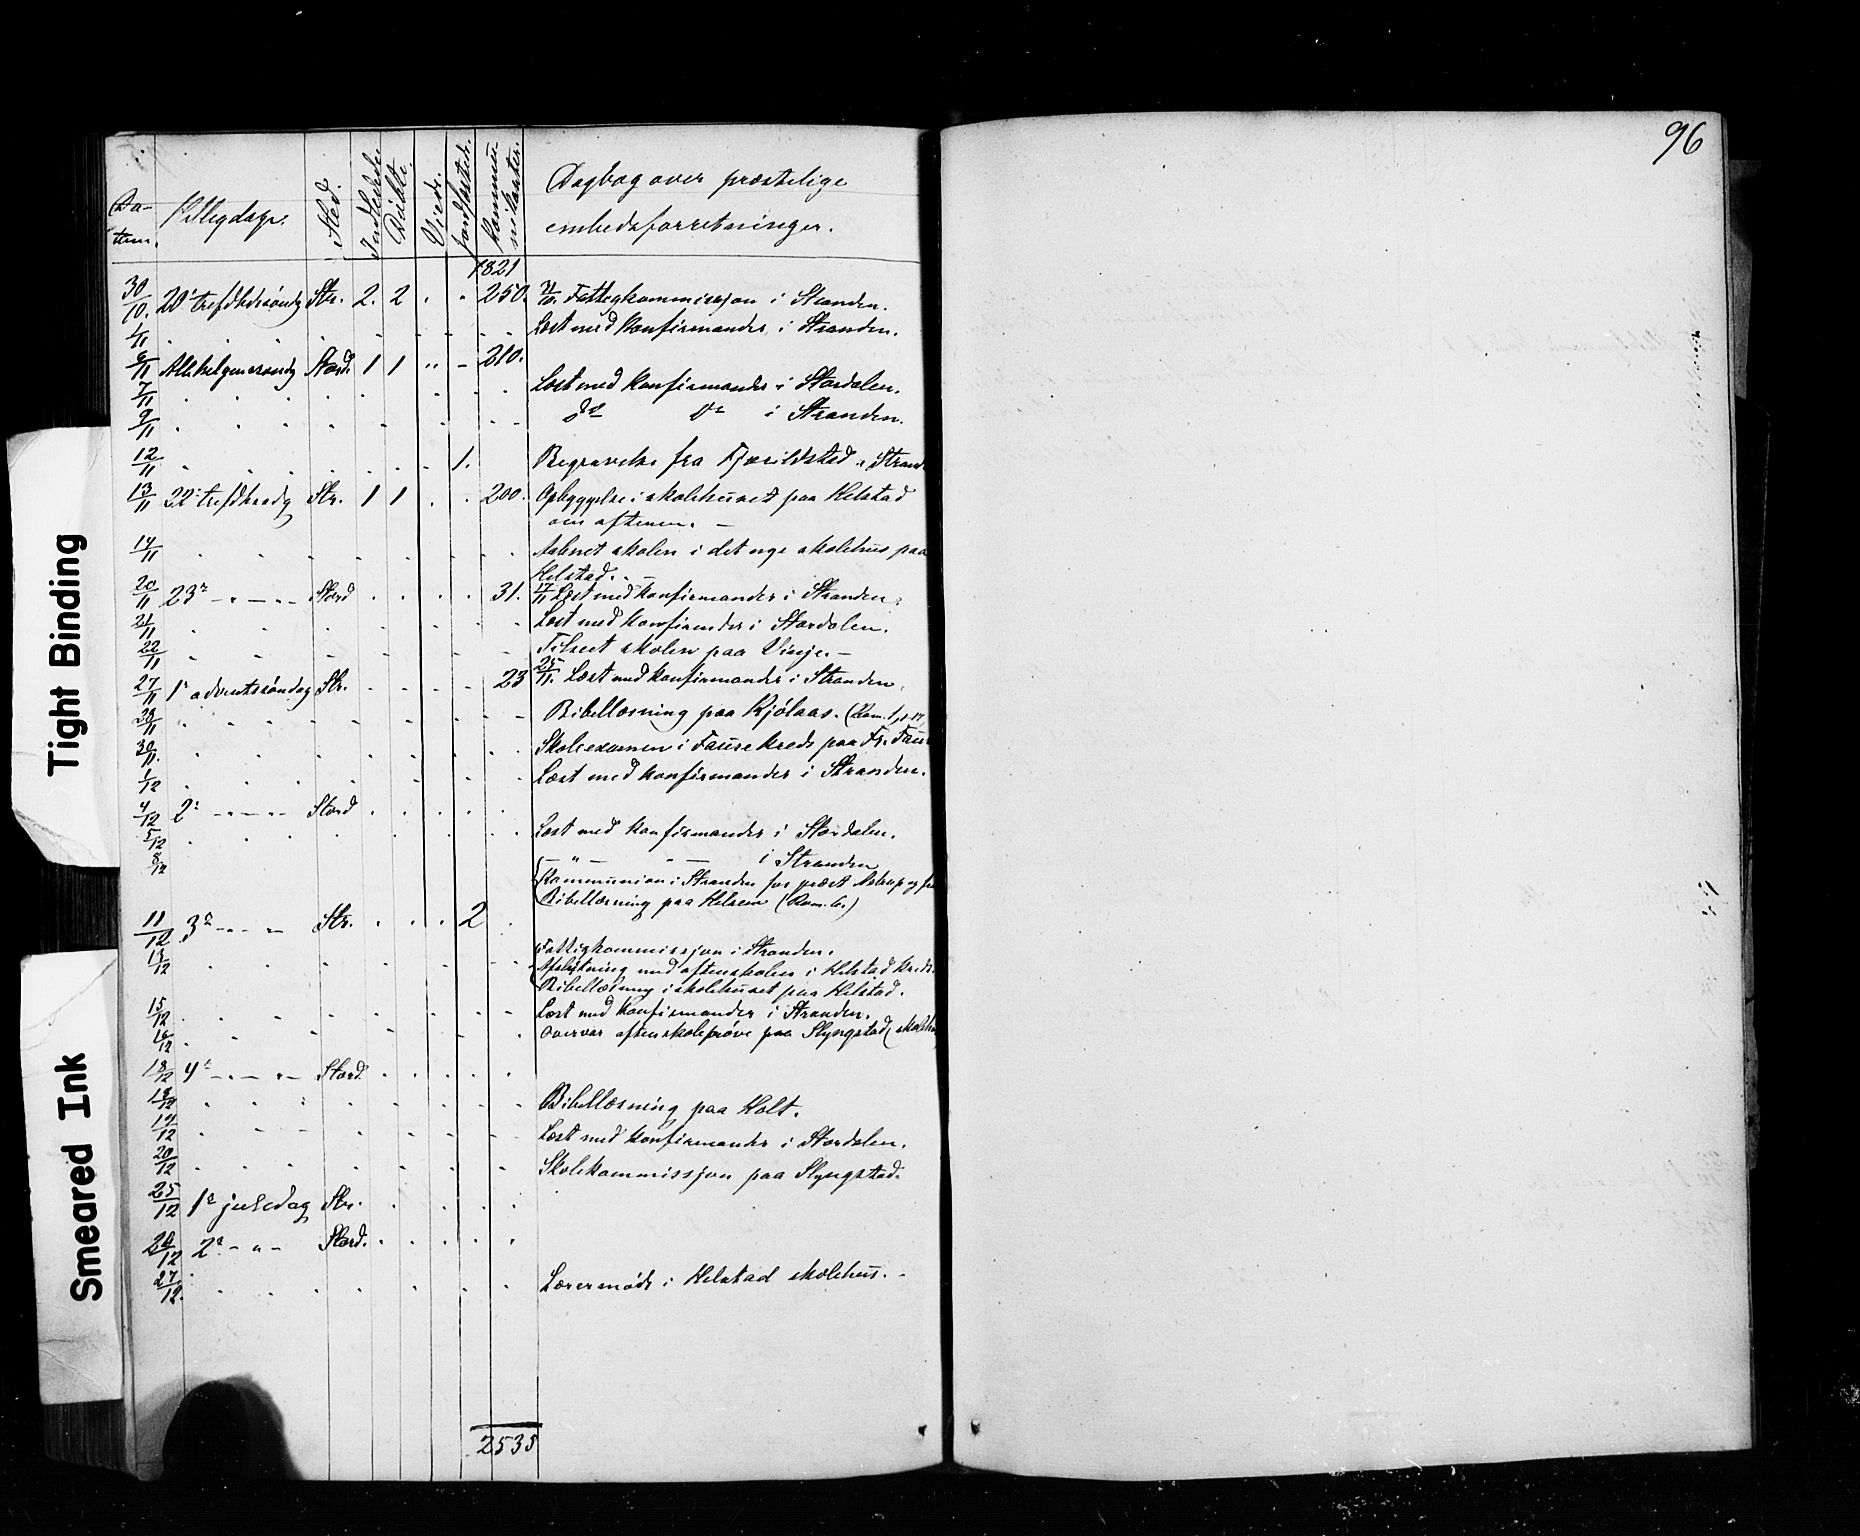 96
Da-
tum.
Helligdage.
Sted.
Indledede
Døbte.
Viede.
Jordfæstede.
Kommu-
nikanter.
Dagbog over præstelige
embedsforretninger.
1821
30/10. 20' trefdhdssøndg Str. 2. 2 . . 250. 31/10. Fattigkommissjon i Stranden.
1/11 . . . . . . Læst med konfirmander i Stranden.
6/11 Allehelgenssøndg Stord. 1 1 " - 210.
7/11 . . . . . . Læst med konfirmander i Stordalen.
9/11 . . . . . . do do i Stranden.
12/11 . . . . . 1. Begravelse fra Fjærildstad i Strand
13/11 22' trefdhsdg Str. 1 1 . . 200. Opbyggelse i skolehuset paa Helstad
om aftenen. -
14/11 . . . . . . Aabnet skolen i det nye skolehus paa
Helstad. -
20/11 23' - " - " - Stord . . . . 31. 17/11 Læst med konfirmander i Stranden.
21/11 . . . . . . Læst med konfirmander i Stordalen.
22/11 . . . . . . Tilseet skolen paa Vinje. -
27/11 1' adventssøndag Str. . . . - 23 25/11. Læst med konfirmander i Stranden.
29/11 . . . . . . Bibellæsning paa Kjølaas. (Rom. 1, 1-17)
30/11. . . . . . . Skoleexamen i Fause kreds paa Fr. Fause
1/12 . . . . . . Læst med konfirmander i Stranden.
4/12 2' - " - " - Stord . . . . .
5/12 . . . . . . Læst med konfirmander i Stordalen.
8/12 - " - " - i Stranden
Kommunion i Stranden for præst Astrup og fru
Bibellæsning paa Helsem (Rom. 6.)
11/12 3' - " - " - Str. . . . 2 .
13/12 . . . . . . Fattigkommissjon i Stranden.
Afslutning med aftenskolen i Helstad kreds.
Bibellæsning i skolehuset paa Helstad.
15/12 . . . . . . Læst med konfirmander i Stranden.
16/12 . . . . . . overvar aftenskoleprøve paa Slyngstad (skolehus
18/12 4' - " - " - Stord. . . . . .
18/12 . . . . . . Bibellæsning paa Holt.
19/12 . . . . . . Læst med konfirmander i Stordalen.
20/12 . . . . . . Skolekommissjon paa Slyngstad.
25/12 1' juledag Str. . . . . .
26/12 2' - " - Stord. . . . . .
27/12. . . . . . . Lærermøde i Helstad skolehus. -
2535
Tight Binding
Smeared Ink